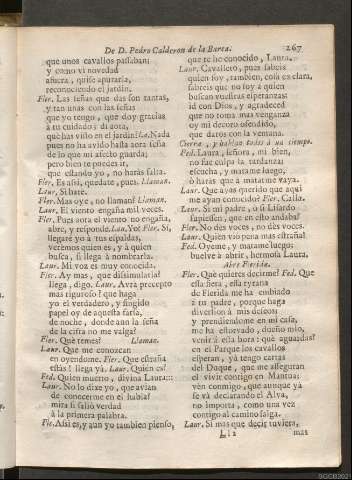 De D. Pedro Calderon de la Barca. 267
que unos cavallos passaban;
y como vi novedad
afuera, quise apurarla,
reconociendo el jardin.
Fler. Las señas que das son tantas,
y tan unas con las señas
que yo tengo, que doy gracias
à tu cuidado; di aora,
què has visto en el jardin? La. Nada
pues no ha avido hasta aora seña
de lo que mi afecto guarda;
pero bien te puedes ir,
que estando yo, no haràs falta.
Fler. Es assi, quedate, pues. Llaman.
Laur. Si harè.
Fler. Mas oye, no llaman? Llaman.
Laur. El viento engaña mil veces.
Fler. Pues aora el viento no engaña,
abre, y responde. Lau. Yo? Fler. Si,
llegarè yo à tus espaldas,
verèmos quien es, y à quien
busca, si llega à nombrarla.
Laur. Mi voz es muy conocida.
Fler. Ay mas, que dissimularla?
llega, digo. Laur. Avrà precepto
mas riguroso? que haga
yo el verdadero, y fingido
papel oy de aquesta farsa,
de noche, donde aun la seña
de la cifra no me valga!
Fler. Què temes? Llaman.
Laur. Que me conozcan
en oyendome. Fler. Que estraña
estàs! llega yà. Laur. Quien es?
Fed. Quien muerto, divina Laura:::
Laur. No lo dixe yo, que avian
de conocerme en el habla?
mira si saliò verdad
à la primera palabra.
Fle. Assi es, y aun yo tambien pienso,
que te he conocido, Laura.
Laur. Cavallero, pues sabeis
quien soy, tambien, cosa es clara,
sabreis que no soy à quien
buscan vuestras esperanzas:
id con Dios, y agradeced
que no toma mas venganza
oy mi decoro ofendido,
que daros con la ventana.
Cierra, y hablan todos à un tiempo.
Fed. Laura, señora, mi bien,
no fue culpa la tardanza;
escucha, y matame luego,
ò haràs que à matarme vaya.
Laur. Que ayas querido que aqui
me ayan conocido? Fler. Calla.
Laur. Si mi padre, ù si Lisardo
supiessen, que en esto andaba?
Fler. No dès voces, no dès voces.
Laur. Quien viò pena mas estraña!
Fed. Oyeme, y matame luego:
buelve à abrir, hermosa Laura.
Abre Flerida.
Fler. Què quieres decirme? Fed. Que
esta fiera, esta tyrana
de Flerida me ha embiado
à tu padre, porque haga
diversion à mis deseos;
y prendiendome en mi casa,
me ha estorvado, dueño mio,
venir à esta hora: què aguardas?
en el Parque los cavallos
esperan, yà tengo cartas
del Duque, que me asseguran
el vivir contigo en Mantua;
vèn conmigo, que aunque yà
se và declarando el Alva,
no importa, como una vez
contigo al camino salga.
Laur. Si mas que decir tuviera,
Ll 2 mas